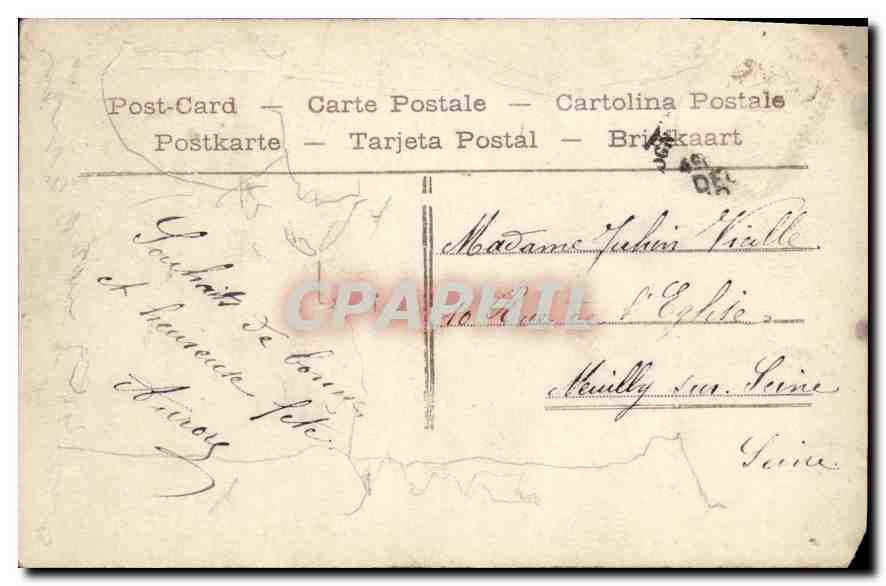 Post-Card — Carte Postale — Cartolina Postale
Postkarte — Tarjeta Postal — Briefkaart
DEC
Souhaits de bonne
et heureuse fête
Madame Julien Vialle
10 Rue de l'Eglise
Neuilly sur Seine
Seine
CPAPHIL